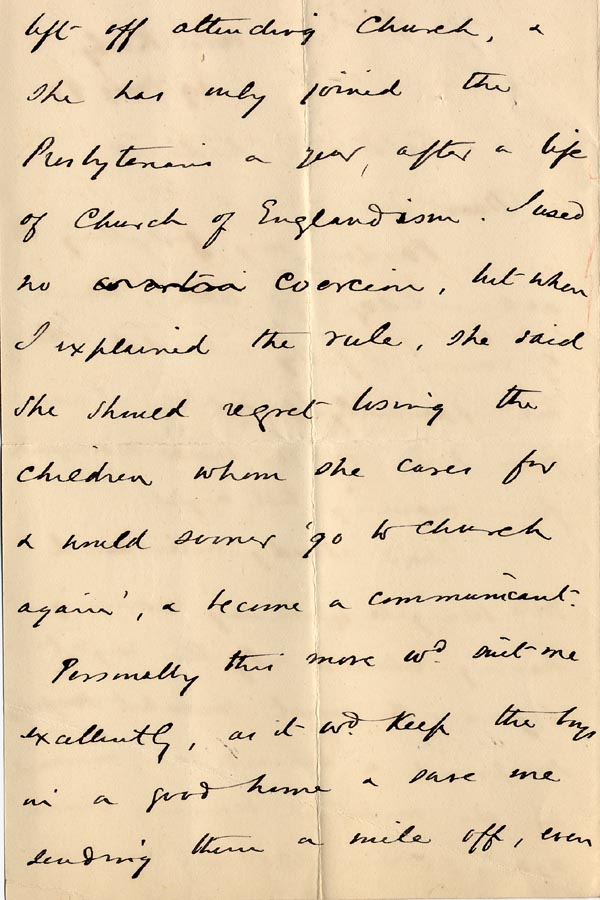 left off attending Church, &
she has only joined the
Presbyterians a year, after a life
of Church of Englandism. I used
no coercion, but when
I explained the rule, she said
she should regret losing the
children whom she cares for
& would sooner 'go to church
again', & become a communicant.
Personally this move wd. suit me
excellently, as it wd. keep the boys
in a good home & save me
sending them a mile off, even